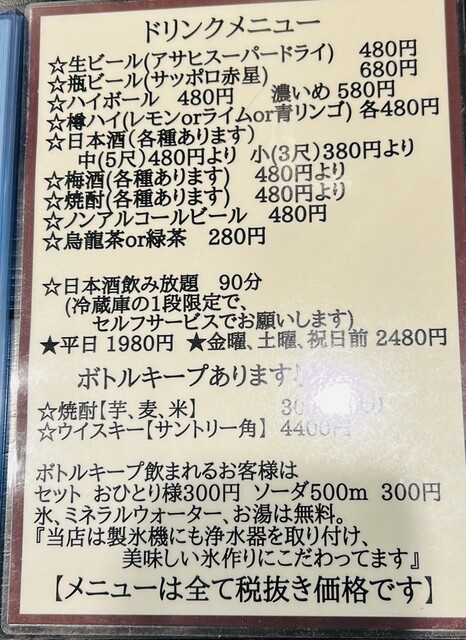 ドリンクメニュー
☆生ビール(アサヒスーパードライ) 480円
☆瓶ビール(サッポロ赤星) 680円
☆ハイボール 480円 濃いめ 580円
☆樽ハイ(レモンorライムor青リンゴ) 各480円
☆日本酒(各種あります)
中(5尺)480円より 小(3尺)380円より
☆梅酒(各種あります) 480円より
☆焼酎(各種あります) 480円より
☆ノンアルコールビール 480円
☆烏龍茶or緑茶 280円
☆日本酒飲み放題 90分
(冷蔵庫の1段限定で、
セルフサービスでお願いします)
★平日 1980円 ★金曜、土曜、祝日前 2480円
ボトルキープあります
☆焼酎【芋、麦、米】
☆ウイスキー【サントリー角】 4400円
ボトルキープ飲まれるお客様は
セット おひとり様300円 ソーダ500m 300円
氷、ミネラルウォーター、お湯は無料。
『当店は製氷機にも浄水器を取り付け、
美味しい氷作りにこだわってます』
【メニューは全て税抜き価格です】